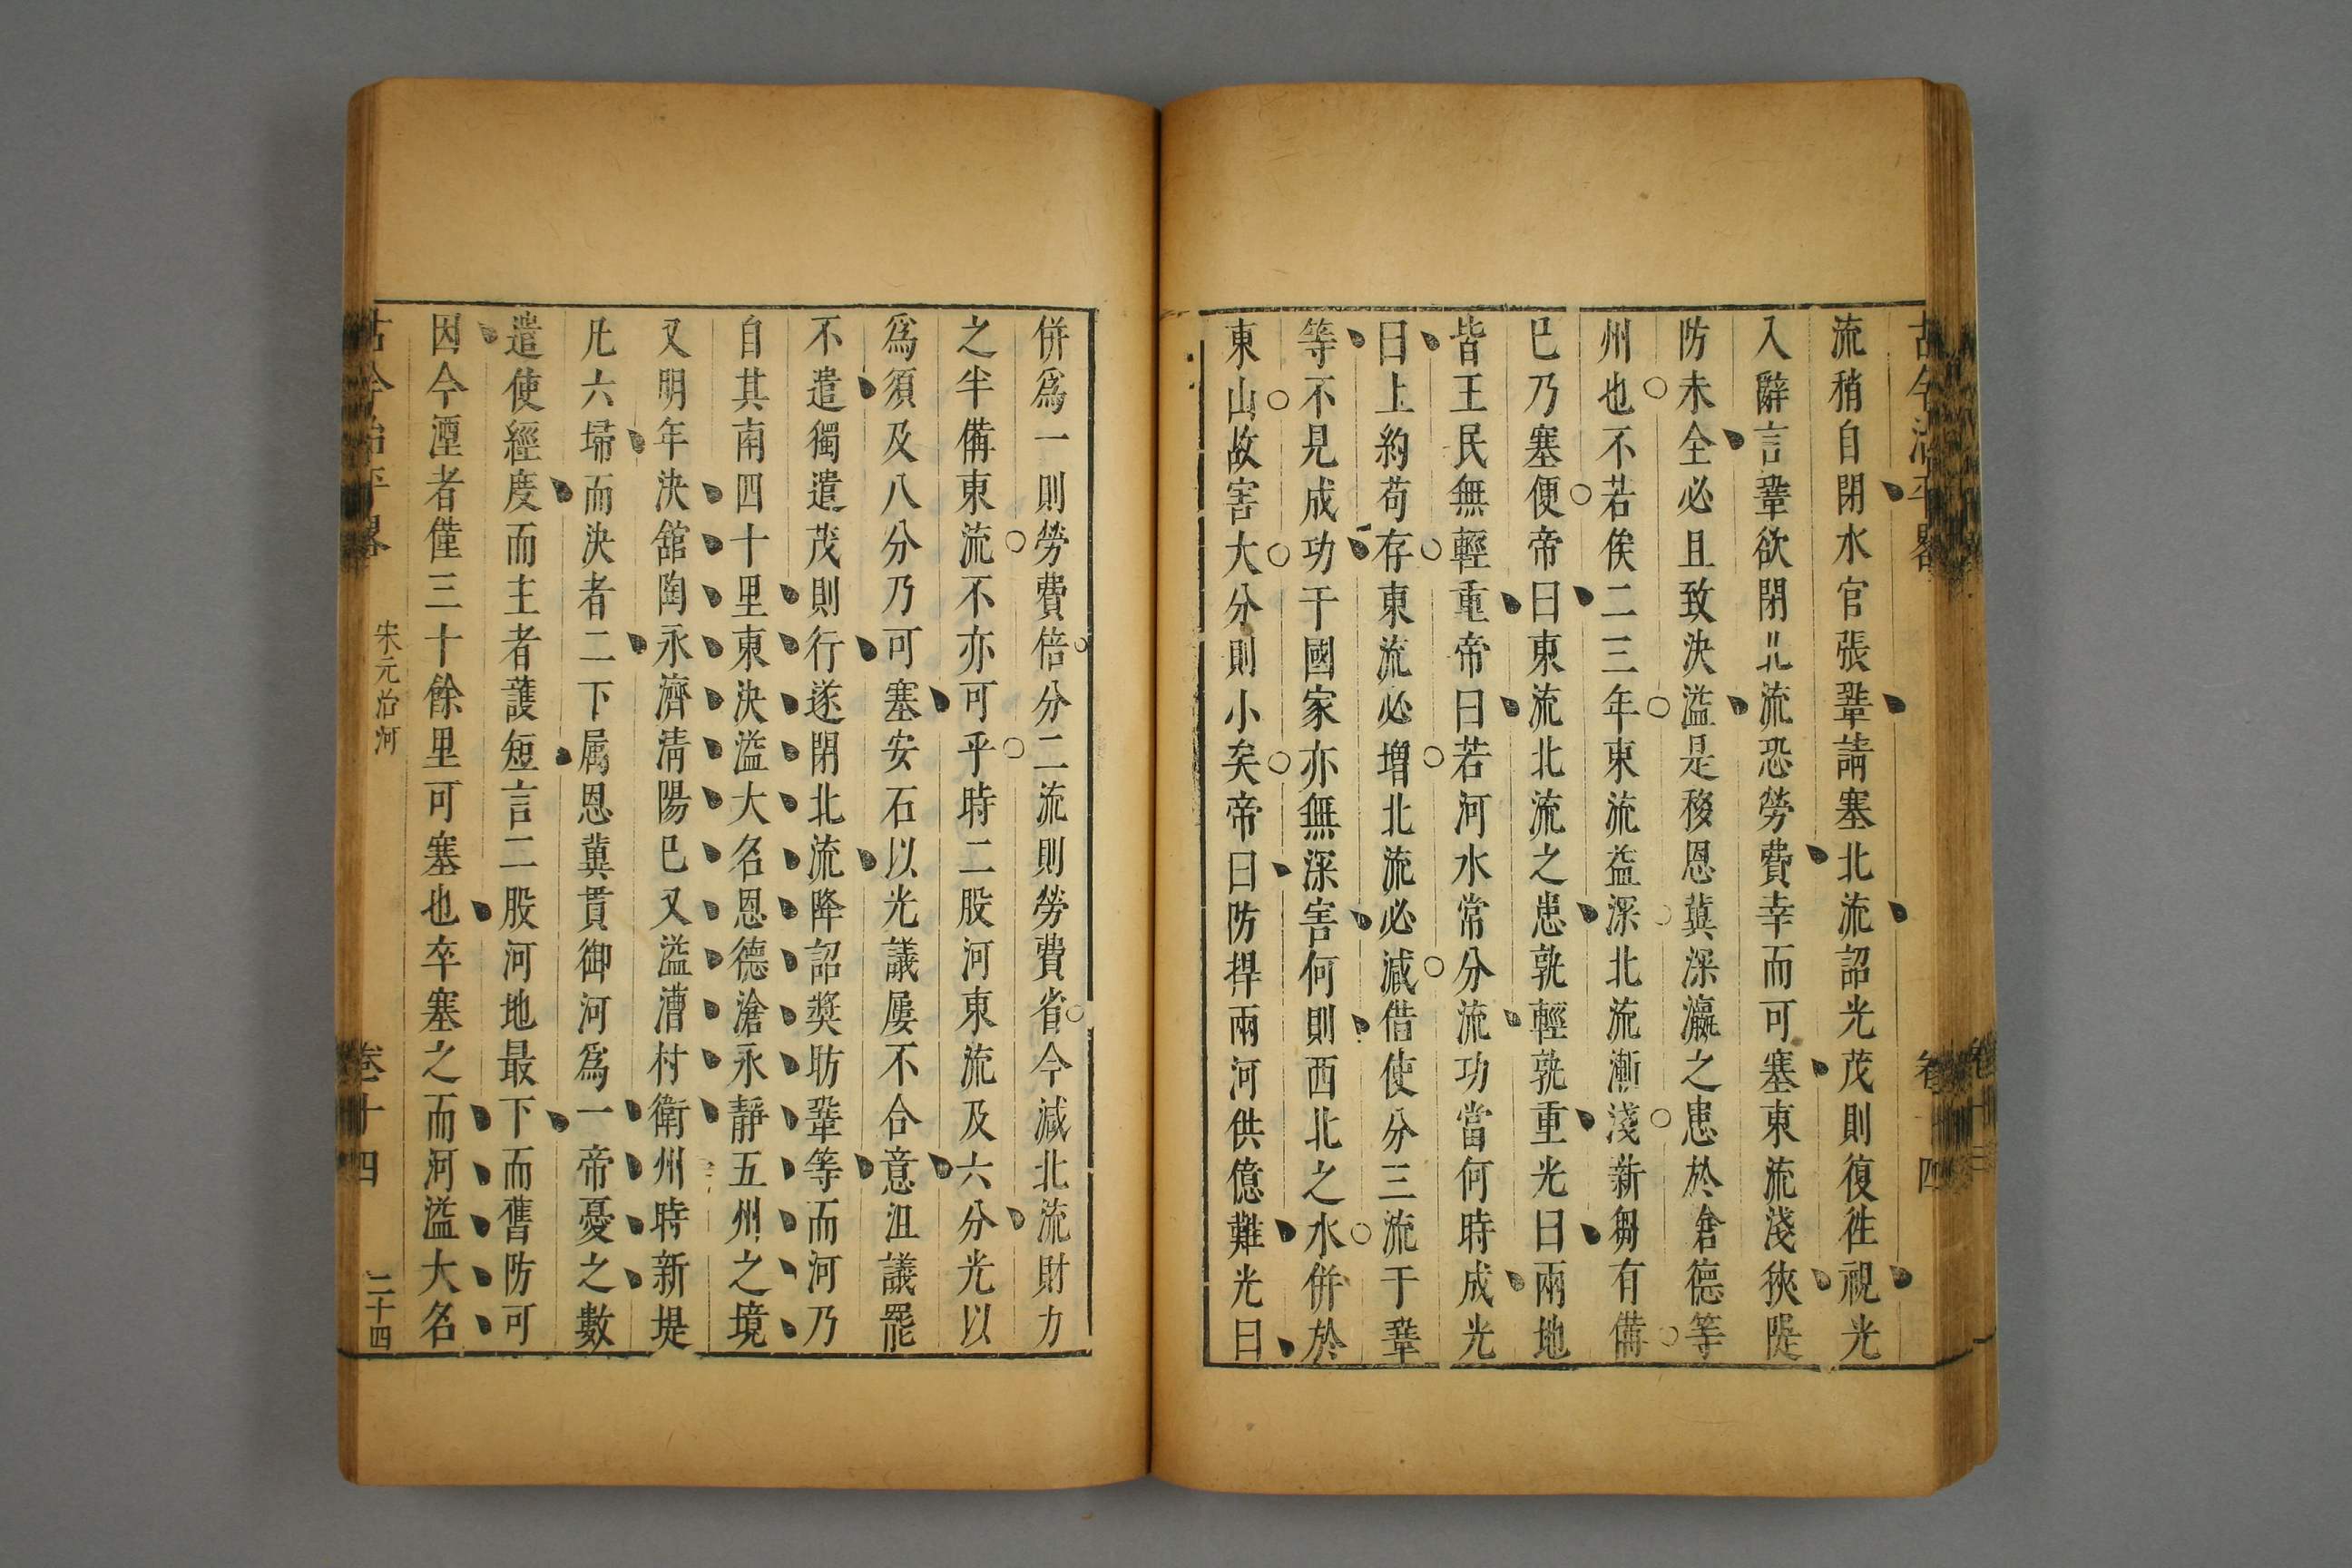 流稍自閉水官張鞏請塞北流詔光茂則復往視光
入辭言鞏欲閉北流恐勞費幸而可塞東流淺狹隄
防未全必且致決溢是移恩冀深瀛之患於倉德等
州也不若俟二三年東流益深北流漸淺新芻有備
巳乃塞便帝曰東流北流之患孰輕孰重光曰兩地
皆王民無輕重帝曰若河水常分流功當何時成光
曰上約苟存東流必增北流必減借使分三流于鞏
等不見成功于國家亦無深害何則西北之水併於
東山故害大分則小矣帝曰防捍兩河供億難光曰
併爲一則勞費倍分二流則勞費省今減北流財力
之半備東流不亦可乎時二股河東流及六分光以
爲須及八分乃可塞安石以光議屢不合意沮議罷
不遣獨遣茂則行遂閉北流降詔獎昉鞏等而河乃
自其南四十里東決溢大名恩德滄永靜五州之境
又明年決舘陶永濟淸陽巳又溢漕村衛州時新堤
凡六埽而決者二下属恩冀貫御河爲一帝憂之數
遣使經度而主者護短言二股河地最下而舊防可
因今湮者僅三十餘里可塞也卒塞之而河溢大名
古今治平畧 宋元治河 卷十四 二十四